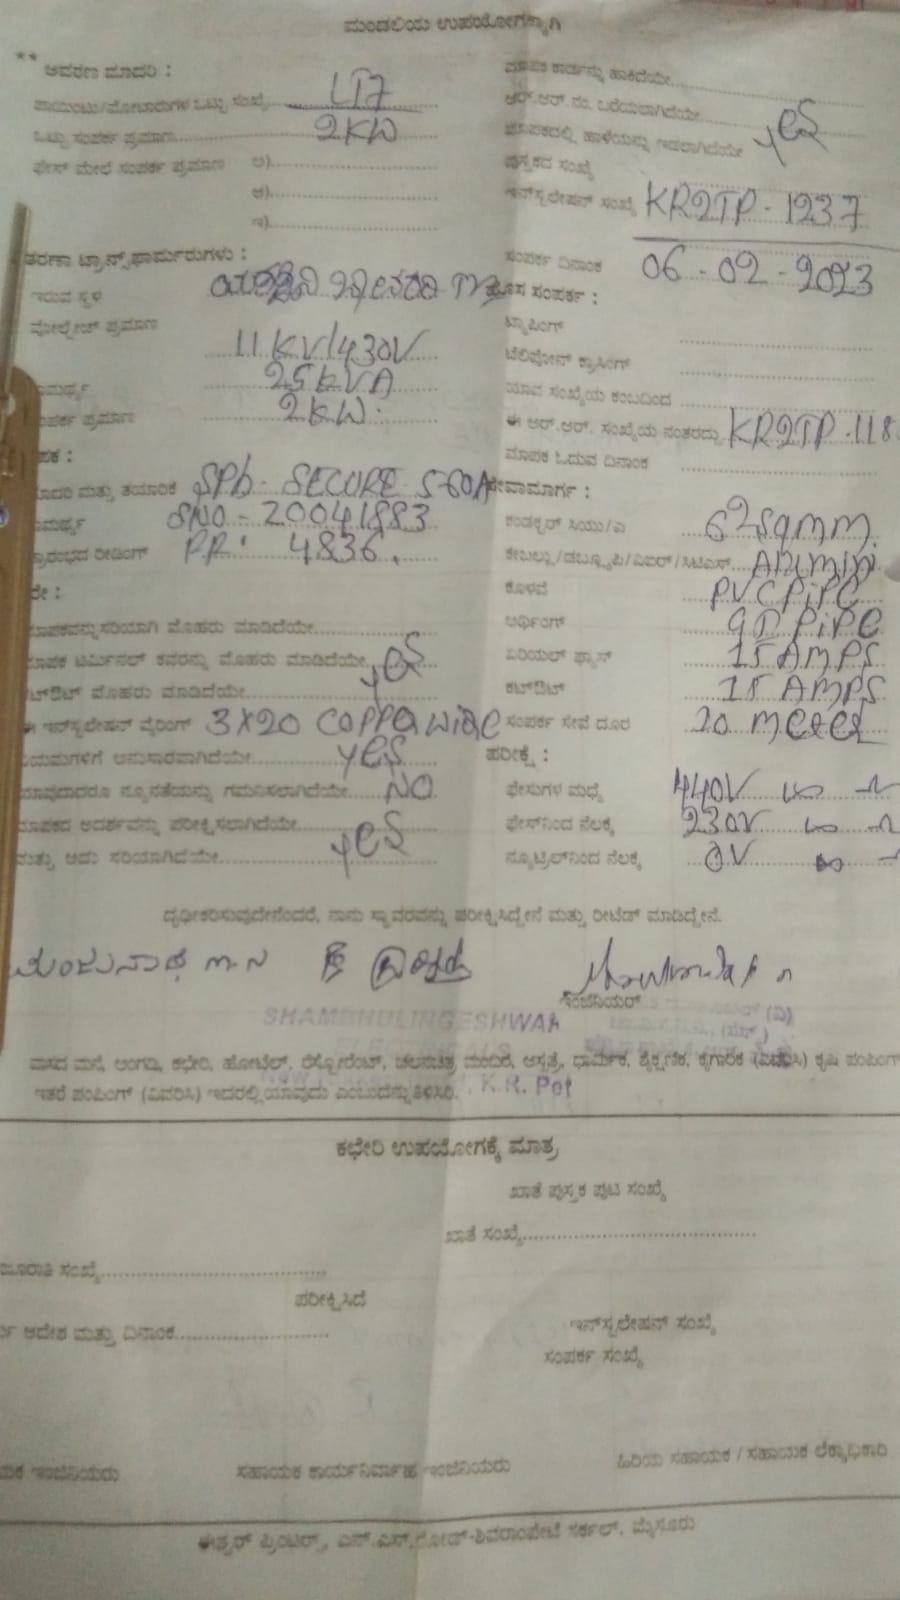 ಮಂಡಲಿಯ ಉಪಯೋಗಕ್ಕಾಗಿ
** ಆವರಣ ಮಾದರಿ :
ಪಾಯಿಂಟು/ಮೋಟಾರುಗಳ ಒಟ್ಟು ಸಂಖ್ಯೆ LT7
ಒಟ್ಟು ಸಂಪರ್ಕ ಪ್ರಮಾಣ 2KW
ಫೇಸ್ ಮೇಲೆ ಸಂಪರ್ಕ ಪ್ರಮಾಣ ಅ)
ಆ)
ಇ)
ತರಣಾ ಟ್ರಾನ್ಸ್‌ಫಾರ್ಮರುಗಳು :
ಇರುವ ಸ್ಥಳ
ವೋಲ್ಟೇಜ್ ಪ್ರಮಾಣ
11KV/430V
ಾಮರ್ಥ್ಯ 25KVA
ಂಪರ್ಕ ಪ್ರಮಾಣ 2KW
ಪಕ :
ಾದರಿ ಮತ್ತು ತಯಾರಿಕೆ SPh- SECURE 5-60A
ಾಮರ್ಥ್ಯ SNO-20041883
್ರಾರಂಭದ ರೀಡಿಂಗ್ P.R: 4836.
ರೇ :
ಾಪಕವನ್ನು ಸರಿಯಾಗಿ ಮೊಹರು ಮಾಡಿದೆಯೇ
ಾಪಕ ಟರ್ಮಿನಲ್ ಕವರನ್ನು ಮೊಹರು ಮಾಡಿದೆಯೇ yes
ಟ್‌ಔಟ್ ಮೊಹರು ಮಾಡಿದೆಯೇ
ಈ ಇನ್‌ಸ್ಟಲೇಷನ್ ವೈರಿಂಗ್ 3X20 COPPER WIRE
ಿಯಮಗಳಿಗೆ ಅನುಸಾರವಾಗಿದೆಯೇ yes
ಾವುದಾದರೂ ನ್ಯೂನತೆಯನ್ನು ಗಮನಿಸಲಾಗಿದೆಯೇ NO
ಾಪಕದ ಆದರ್ಶವನ್ನು ಪರೀಕ್ಷಿಸಲಾಗಿದೆಯೇ
ಮತ್ತು ಅದು ಸರಿಯಾಗಿದೆಯೇ yes
ಮಾಪಕ ಕಾರ್ಡನ್ನು ಹಾಕಿದೆಯೇ
ಆರ್.ಆರ್.ನಂ. ಬರೆಯಲಾಗಿದೆಯೇ yes
ಮಾಪಕದಲ್ಲಿ ಹಾಳೆಯನ್ನು ಇಡಲಾಗಿದೆಯೇ
ಪುಸ್ತಕದ ಸಂಖ್ಯೆ
ಇನ್‌ಸ್ಟಲೇಷನ್ ಸಂಖ್ಯೆ KR2TP-1237
ಸಂಪರ್ಕ ದಿನಾಂಕ 06-02-2023
ಹೊಸ ಸಂಪರ್ಕ :
ಟ್ಯಾಪಿಂಗ್
ಟೆಲಿಫೋನ್ ಕ್ರಾಸಿಂಗ್
ಯಾವ ಸಂಖ್ಯೆಯ ಕಂಬದಿಂದ
ಈ ಆರ್.ಆರ್. ಸಂಖ್ಯೆಯ ನಂತರದ್ದು KR2TP-118
ಮಾಪಕ ಓದುವ ದಿನಾಂಕ
ಸೇವಾಮಾರ್ಗ :
ಕಂಡಕ್ಟರ್ ಸಿಯು/ಎ sqmm.
ಕೇಬಲ್ಲು/ಡಬ್ಲ್ಯೂಪಿ/ವಿಐಆರ್/ಸಿಟಿಎಸ್
ಕೊಳವೆ PVC PiPe
ಅರ್ಥಿಂಗ್ PiPe
ಏರಿಯಲ್ ಫ್ಯೂಸ್ 15 AMPS
ಕಟ್‌ಔಟ್ 15 AMPS
ಸಂಪರ್ಕ ಸೇವೆ ದೂರ 20 meter
ಪರೀಕ್ಷೆ :
ಫೇಸುಗಳ ಮಧ್ಯೆ 440V ∞
ಫೇಸ್‌ನಿಂದ ನೆಲಕ್ಕೆ 230V ∞
ನ್ಯೂಟ್ರಲ್‌ನಿಂದ ನೆಲಕ್ಕೆ 0V ∞
ದೃಢೀಕರಿಸುವುದೇನೆಂದರೆ, ನಾನು ಸ್ಥಾವರವನ್ನು ಪರೀಕ್ಷಿಸಿದ್ದೇನೆ ಮತ್ತು ರೀಟೆಡ್ ಮಾಡಿದ್ದೇನೆ.
ಮಂಜುನಾಥ ಎಂ.ಎನ
ಇಂಜಿನಿಯರ್
SHAMBHULINGESHWAR
ELECTRICALS
K.R. Pet
ವಾಸದ ಮನೆ, ಅಂಗಡಿ, ಕಛೇರಿ, ಹೋಟೆಲ್, ರೆಸ್ಟೋರೆಂಟ್, ಚಲನಚಿತ್ರ ಮಂದಿರ, ಆಸ್ಪತ್ರೆ, ಧಾರ್ಮಿಕ, ಶೈಕ್ಷಣಿಕ, ಕೈಗಾರಿಕೆ (ವಿವರಿಸಿ) ಕೃಷಿ ಪಂಪಿಂಗ್
ಇತರೆ ಪಂಪಿಂಗ್ (ವಿವರಿಸಿ) ಇದರಲ್ಲಿ ಯಾವುದು ಎಂಬುದನ್ನು ತಿಳಿಸಿರಿ.
ಕಛೇರಿ ಉಪಯೋಗಕ್ಕೆ ಮಾತ್ರ
ಖಾತೆ ಪುಸ್ತಕ ಪುಟ ಸಂಖ್ಯೆ
ಖಾತೆ ಸಂಖ್ಯೆ
ಜೂರಾತಿ ಸಂಖ್ಯೆ
ಪರೀಕ್ಷಿಸಿದೆ
ಆದೇಶ ಮತ್ತು ದಿನಾಂಕ
ಇನ್‌ಸ್ಟಲೇಷನ್ ಸಂಖ್ಯೆ
ಸಂಪರ್ಕ ಸಂಖ್ಯೆ
ಯಕ ಇಂಜಿನಿಯರು ಸಹಾಯಕ ಕಾರ್ಯನಿರ್ವಾಹ ಇಂಜಿನಿಯರು ಹಿರಿಯ ಸಹಾಯಕ / ಸಹಾಯಕ ಲೆಕ್ಕಾಧಿಕಾರಿ
ಈಶ್ವರ್ ಪ್ರಿಂಟರ್ಸ್, ಎನ್.ಎಸ್.ರೋಡ್-ಶಿವರಾಂಪೇಟೆ ಸರ್ಕಲ್, ಮೈಸೂರು